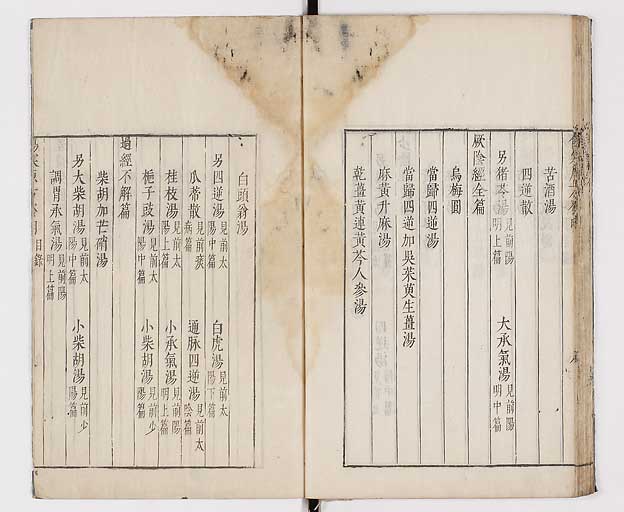 苦酒湯
四逆散
另猪苓湯見前陽明上篇　大承氣湯見前陽明中篇
厥陰經全篇
烏梅圓
當歸四逆湯
當歸四逆加吳茱萸生薑湯
麻黃升麻湯
乾薑黃連黃芩人參湯
白頭翁湯
另四逆湯見前太陽中篇　白虎湯見前太陽下篇
瓜蒂散見前痰病篇　通脉四逆湯見前太陰篇
桂枝湯見前太陽上篇　小承氣湯見前陽明上篇
梔子豉湯見前太陽中篇　小柴胡湯見前少陽篇
過經不解篇
柴胡加芒硝湯
另大柴胡湯見前太陽中篇　小柴胡湯見前少陽篇
調胃承氣湯見前陽明上篇
目錄